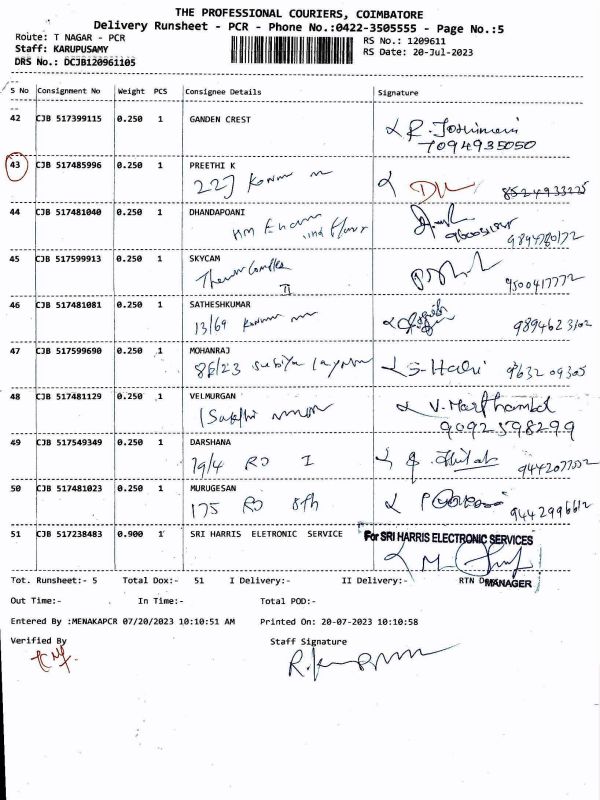 THE PROFESSIONAL COURIERS, COIMBATORE
Delivery Runsheet - PCR - Phone No.:0422-3505555 - Page No.:5
Route: T NAGAR - PCR
RS No.: 1209611
Staff: KARUPUSAMY
RS Date: 20-Jul-2023
DRS No.: DCJB120961105
S No Consignment No Weight PCS Consignee Details Signature
42 CJB 517399115 0.250 1 GANDEN CREST
7094935050
43 CJB 517485996 0.250 1 PREETHI K
22J
44 CJB 517481040 0.250 1 DHANDAPOANI
9894780172
45 CJB 517599913 0.250 1 SKYCAM
II 9500417772
46 CJB 517481081 0.250 1 SATHESHKUMAR
13/69 9894623102
47 CJB 517599690 0.250 1 MOHANRAJ
86/23 S-Hari 9632 09305
48 CJB 517481129 0.250 1 VELMURGAN
1 Sakthi V.
9092598299
49 CJB 517549349 0.250 1 DARSHANA
19/4 RD I
50 CJB 517481023 0.250 1 MURUGESAN
175 RD 8th 9442996612
51 CJB 517238483 0.900 1 SRI HARRIS ELETRONIC SERVICE
For SRI HARRIS ELECTRONIC SERVICES
MANAGER
Tot. Runsheet:- 5 Total Dox:- 51 I Delivery:- II Delivery:- RTN
Out Time:- In Time:- Total POD:-
Entered By :MENAKAPCR 07/20/2023 10:10:51 AM Printed On: 20-07-2023 10:10:58
Verified By Staff Signature